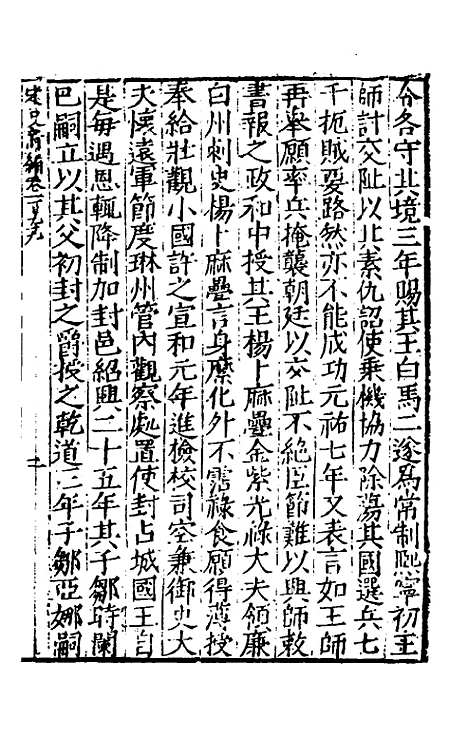 令各守其境三年賜其王白馬二遂為常制熙寧初王
師討交阯以其素仇詔使乗機協力除蕩其國選兵七
千扼賊要路然亦不能成功元祐七年又表言如王師
再舉願率兵掩襲朝廷以交阯不絶臣節難以興師敕
書報之政和中授其王楊卜麻疊金紫光祿大夫領廉
白州刺史楊卜麻疊言身縻化外不霑祿食願得薄授
奉給壯觀小國許之宣和元年進檢校司空兼御史大
夫懷遠軍節度琳州管內觀察處置使封占城國王自
是每遇恩輒降制加封邑紹興二十五年其子鄒時闌
巴嗣立以其父初封之爵授之乾道二年子鄒亞娜嗣
宋史新編卷一百九十九 二